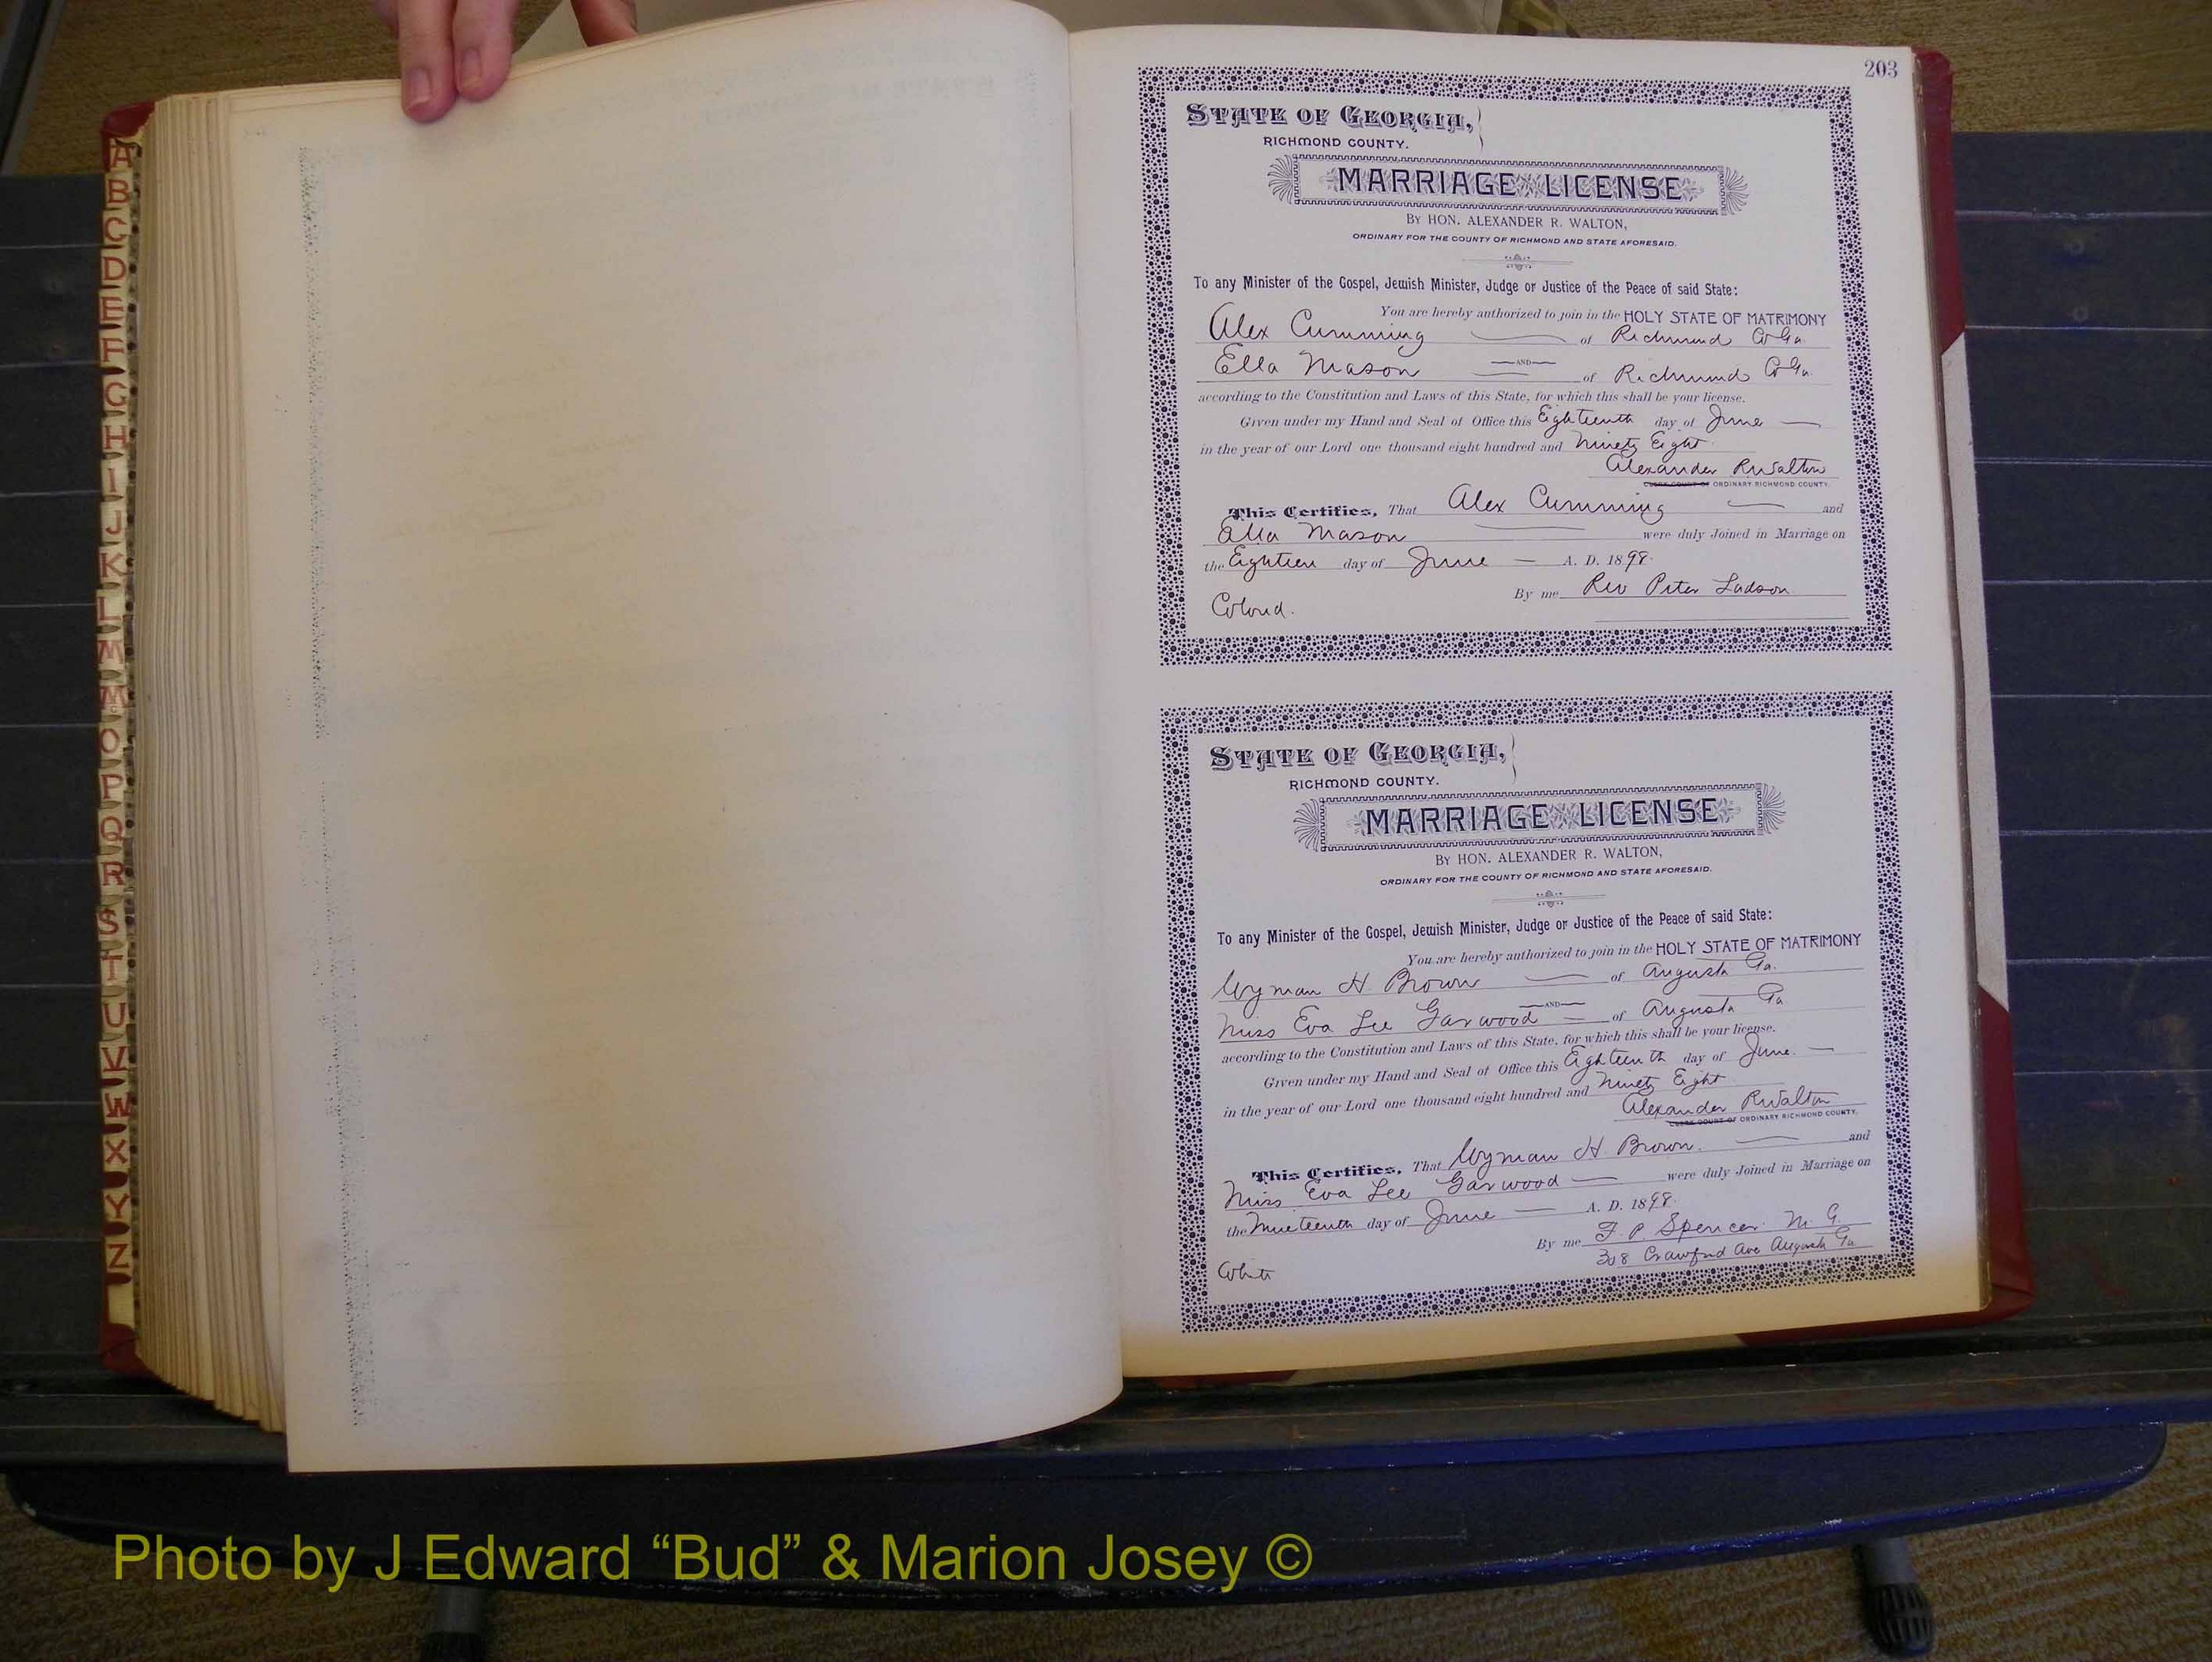 A
B
C
D
E
F
G
H
I
J
K
L
M
Mc
O
P
Q
R
S
T
U
V
W
X
Y
Z
203
STATE OF GEORGIA,
RICHMOND COUNTY.
MARRIAGE LICENSE
BY HON. ALEXANDER R. WALTON,
ORDINARY FOR THE COUNTY OF RICHMOND AND STATE AFORESAID.
To any Minister of the Gospel, Jewish Minister, Judge or Justice of the Peace of said State:
You are hereby authorized to join in the HOLY STATE OF MATRIMONY
Alex Cumming of Richmond Co Ga.
—AND—
Ella Mason of Richmond Co Ga.
according to the Constitution and Laws of this State, for which this shall be your license.
Given under my Hand and Seal of Office this Eighteenth day of June
in the year of our Lord one thousand eight hundred and Ninety Eight
Alexander R Walton
CLERK COURT OF ORDINARY RICHMOND COUNTY.
This Certifies, That Alex Cumming and
Ella Mason were duly Joined in Marriage on
the Eighteen day of June A. D. 1898.
By me Rev Peter Ladson
Colored.
STATE OF GEORGIA,
RICHMOND COUNTY.
MARRIAGE LICENSE
BY HON. ALEXANDER R. WALTON,
ORDINARY FOR THE COUNTY OF RICHMOND AND STATE AFORESAID.
To any Minister of the Gospel, Jewish Minister, Judge or Justice of the Peace of said State:
You are hereby authorized to join in the HOLY STATE OF MATRIMONY
Wyman H. Brown of Augusta Ga.
—AND—
Miss Eva Lee Garwood of Augusta Ga
according to the Constitution and Laws of this State, for which this shall be your license.
Given under my Hand and Seal of Office this Eighteenth day of June.
in the year of our Lord one thousand eight hundred and Ninety Eight
Alexander R Walton
CLERK COURT OF ORDINARY RICHMOND COUNTY.
This Certifies, That Wyman H. Brown. and
Miss Eva Lee Garwood were duly Joined in Marriage on
the Nineteenth day of June A. D. 1898.
By me F. P. Spencer. M. G.
308 Crawford Ave Augusta Ga
White
Photo by J Edward “Bud” & Marion Josey ©